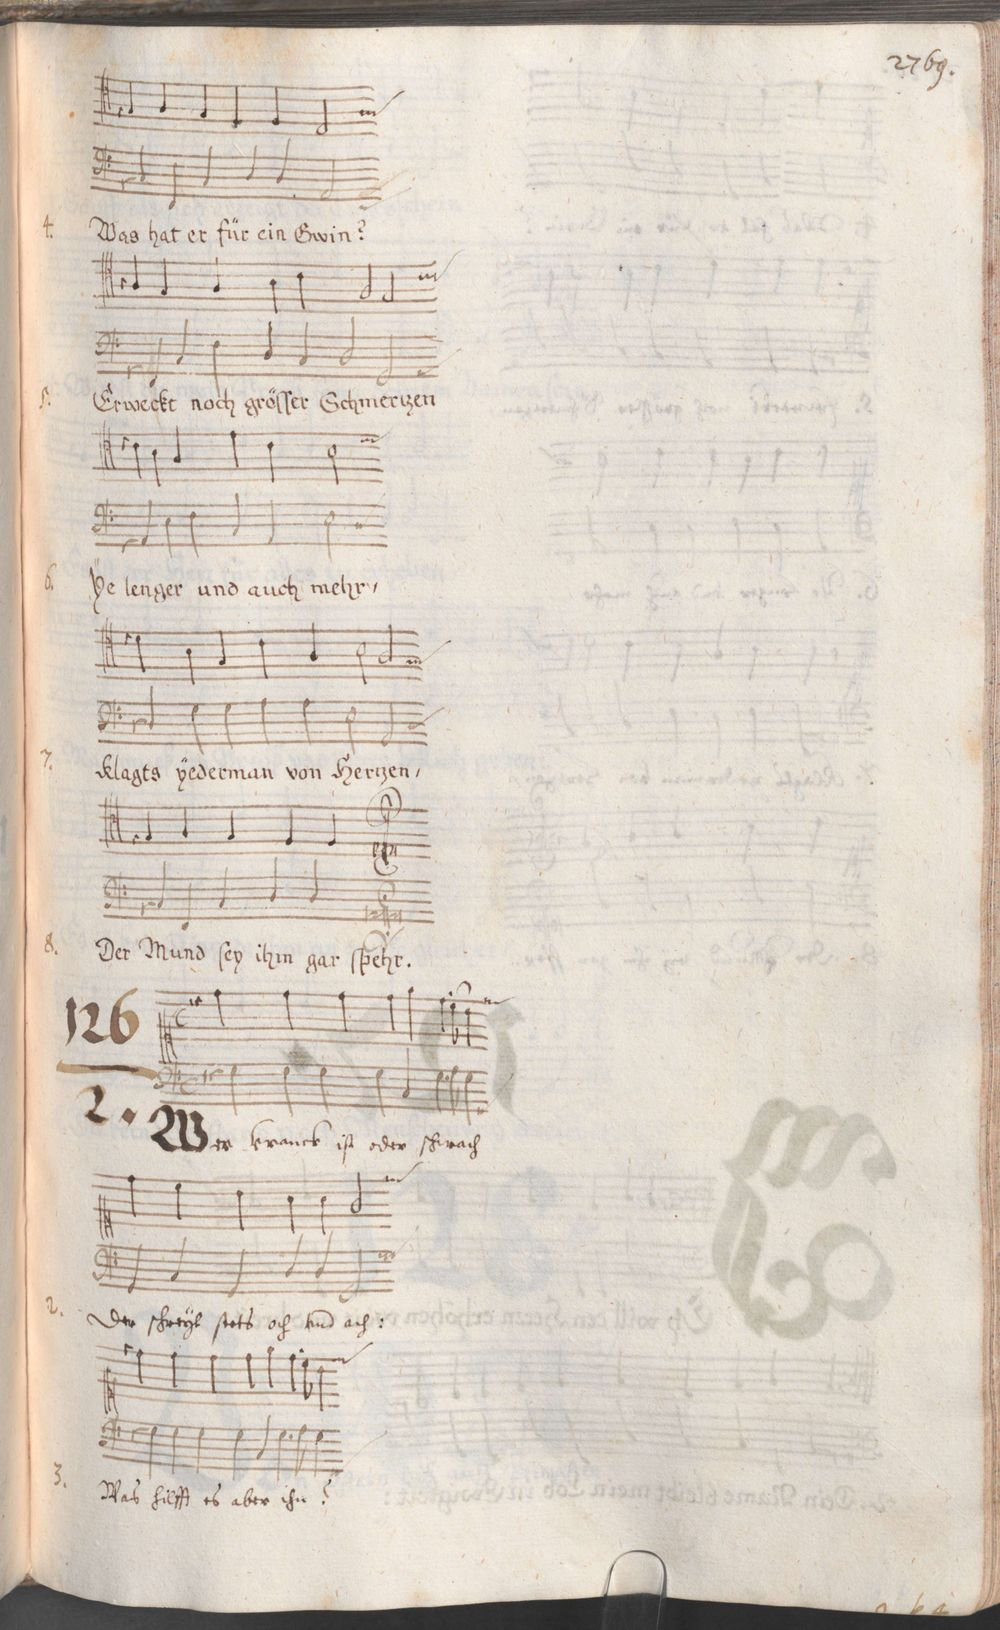 2769.
4. Was hat er für ein Gwin?
5. Erweckt noch grösser Schmertzen
6. Ÿe lenger und auch mehr,
7. Klagts ÿederman von Hertzen,
8. Der Mund seÿ ihm gar spehr.
126
2. Wer kranck ist oder schwach
2. Der schreÿt stets och und ach:
3. Was hilfft es aber ihn?